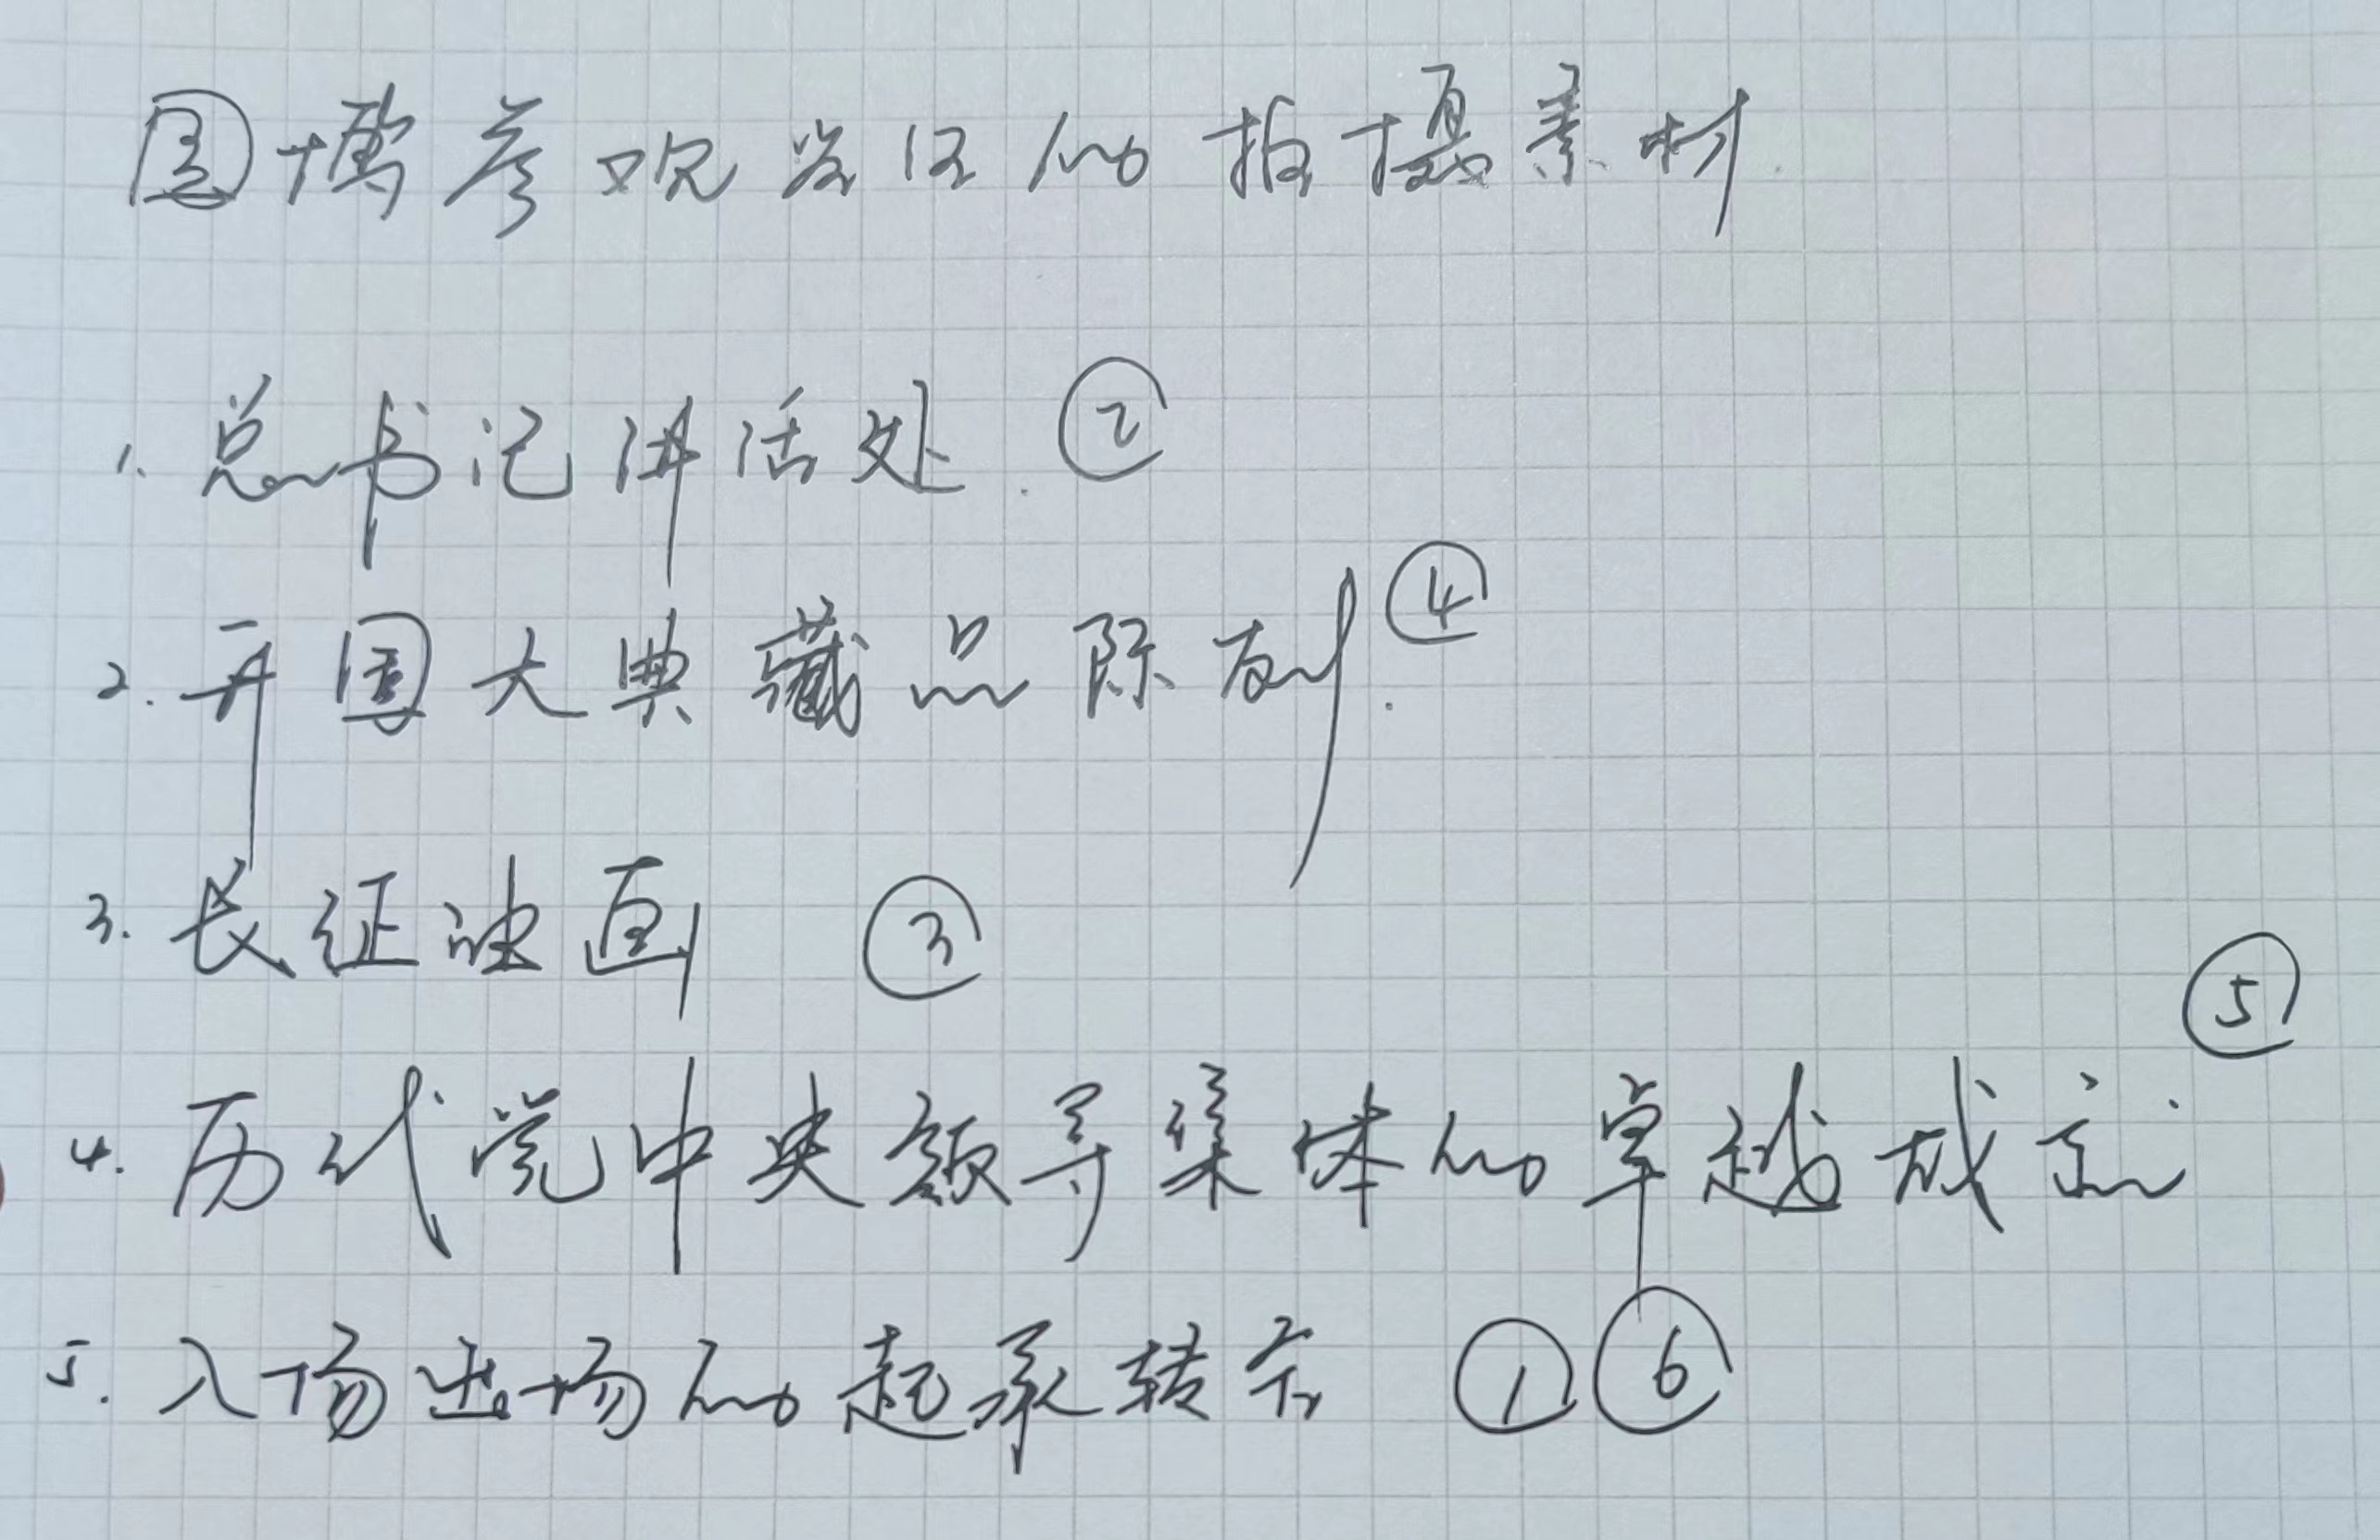 国博参观必须的拍摄素材
1. 总书记讲话处. ②
2. 开国大典藏品陈列. ④
3. 长征油画 ③
4. 历代党中央领导集体的卓越成就 ⑤
5. 入场出场的起承转合 ① ⑥